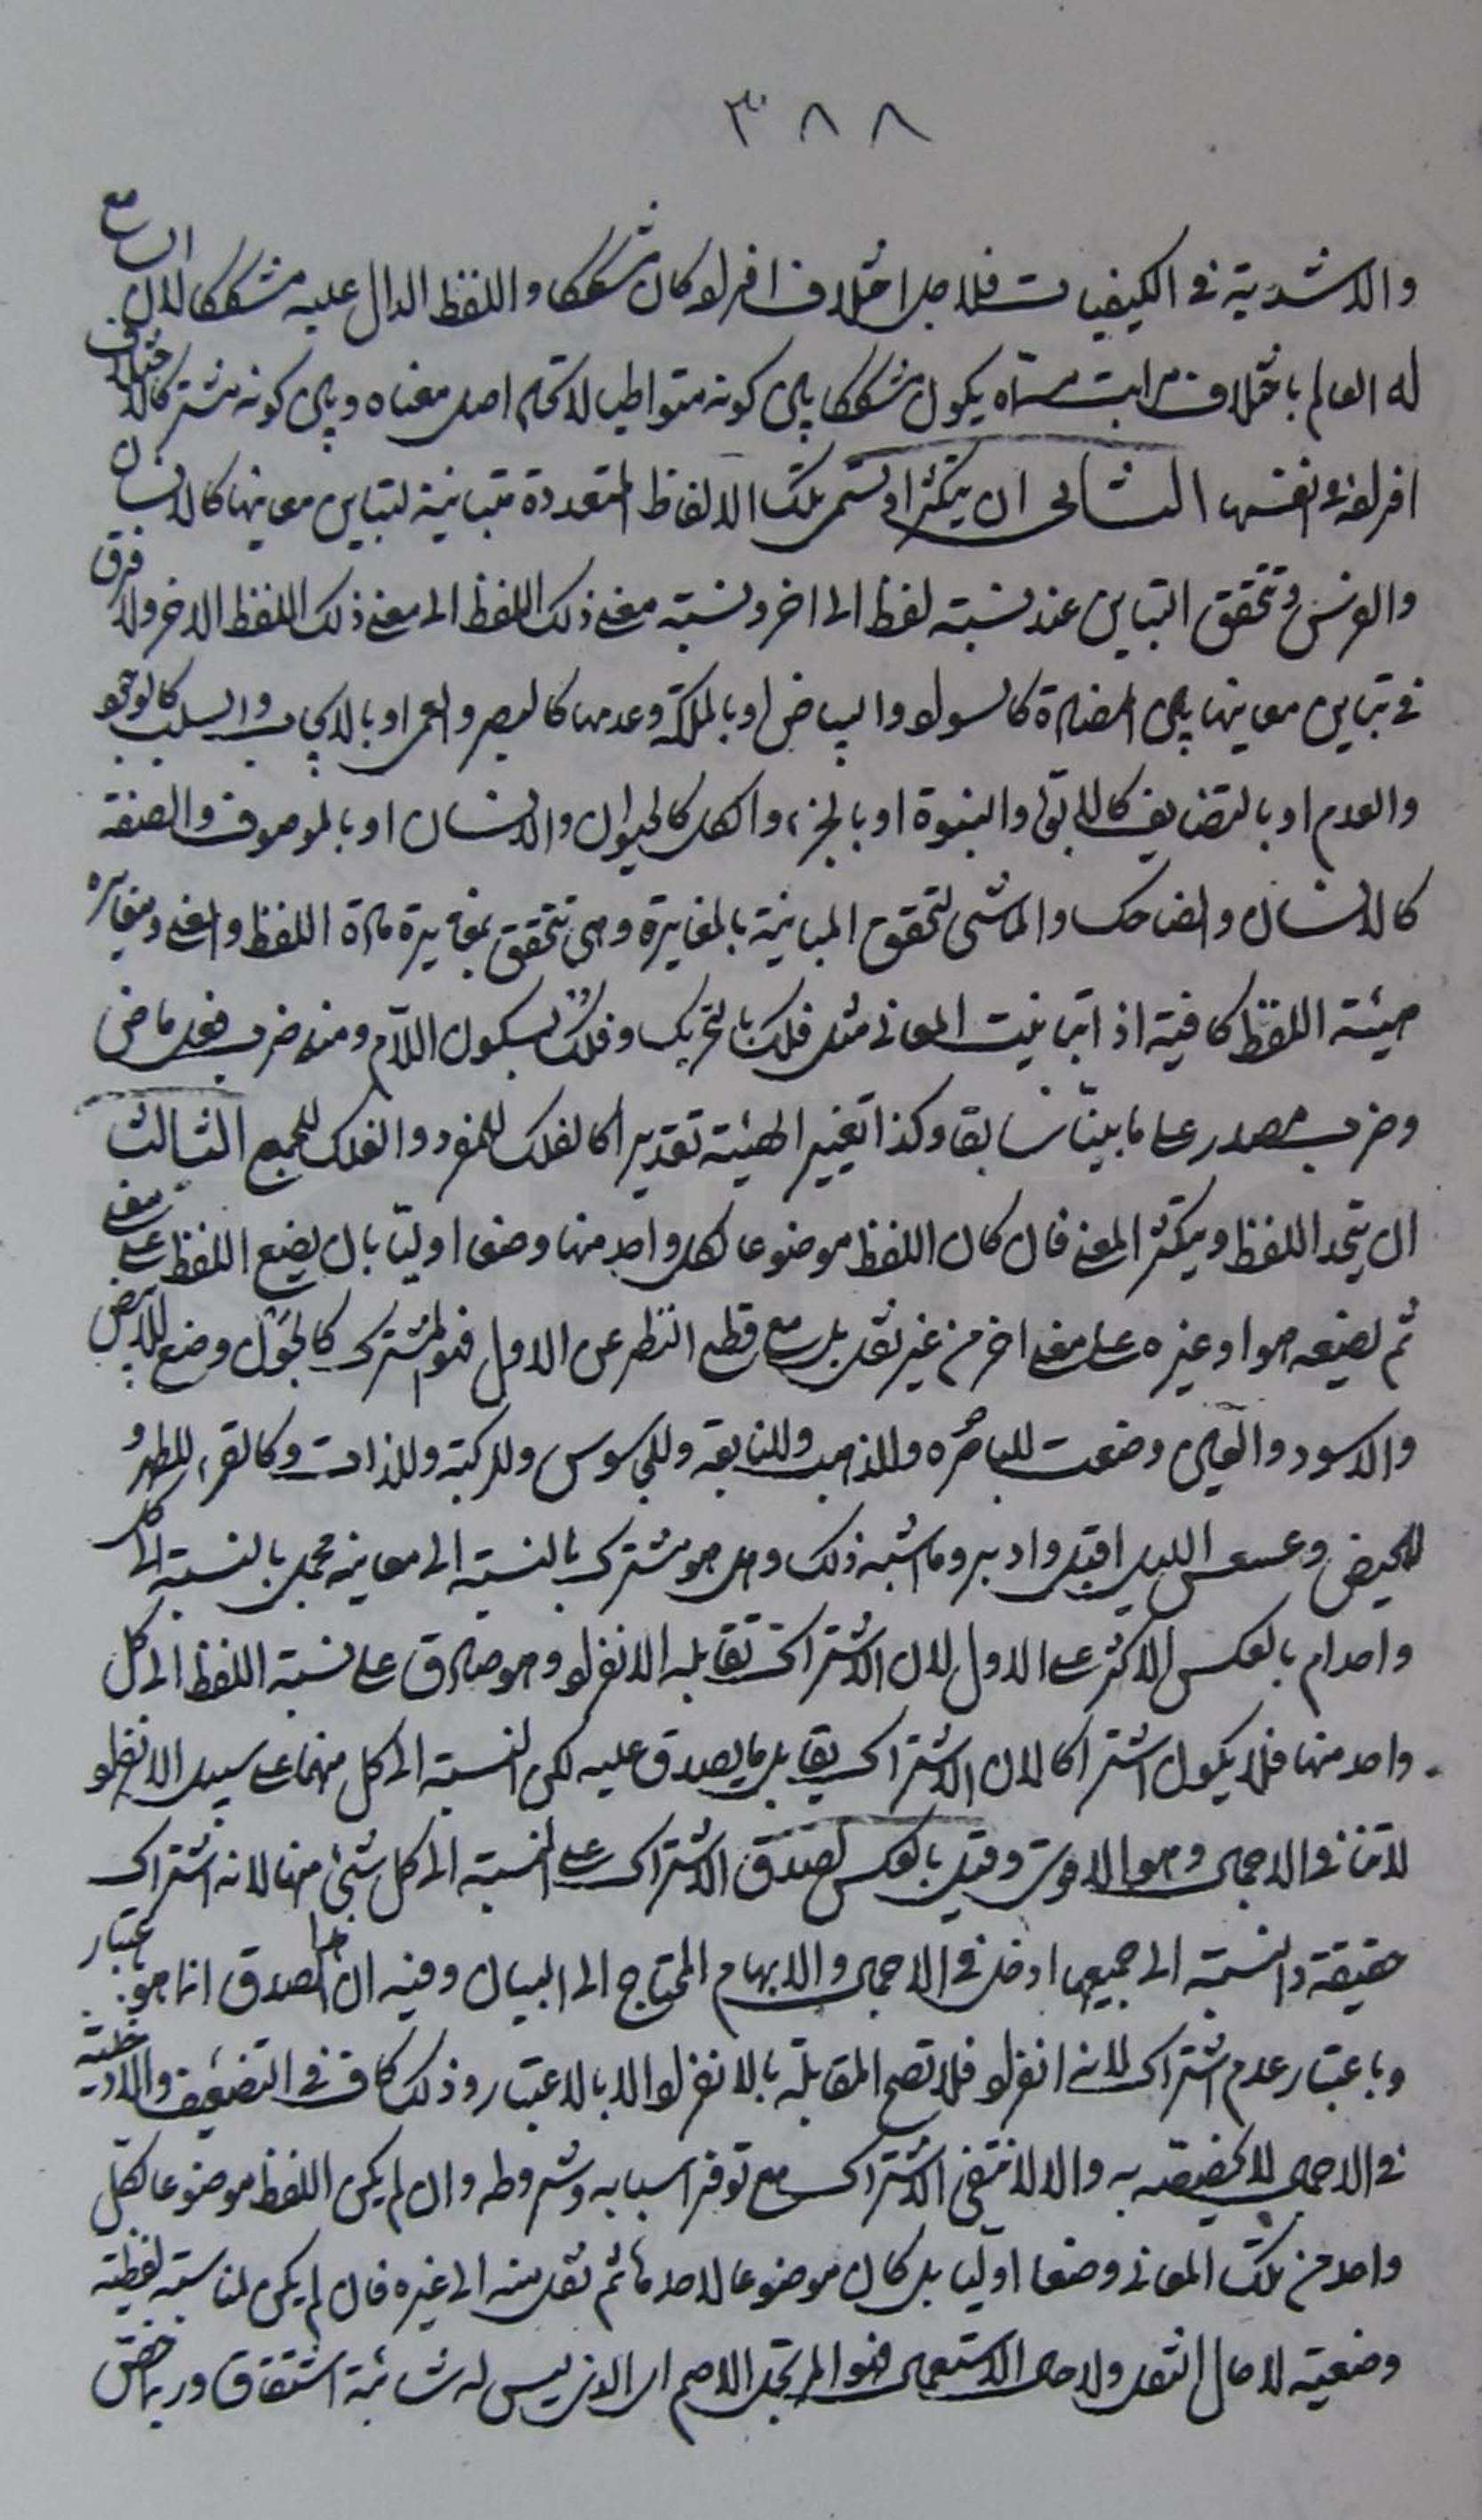 ٣٨٨
والاشدية في الكيفيات فلاجل اختلاف افراده كان مشككا واللفظ الدال عليه مشككا لان السامع
له العالم باختلاف مراتب مسماه يكون مشككا بين كونه متواطيا لاتحاد اصل معناه وبين كونه مشتركا لاختلاف
افراده في انفسها الثاني ان يتكثرا وتسمى تلك الالفاظ المتعددة متباينة لتباين معانيها كالانسان
والفرس وتحقق التباين عند نسبة لفظ الى اخر ونسبة معنى ذلك اللفظ الى معنى ذلك اللفظ الاخر ولا فرق
في تباين معانيها بين المضادة كالسواد والبياض او بالملكة وعدمها كالبصر والعمى او بالايجاب والسلب كالوجود
والعدم او بالتضايف كالابوة والبنوة او بالجزء والكل كالحيوان والانسان او بالموصوف والصفة
كالانسان والضاحك والماشي لتحقق المباينة بالمغايرة وهي تتحقق بمغايرة مادة اللفظ والمعنى ومغايرة
هيئة اللفظ كافية اذا تباينت المعاني مثل فلك بالتحريك وفلك بسكون اللام ومنه ضرب فعل ماضي
وضرب مصدر على ما بينا سابقا وكذا تغيير الهيئة تقديرا كالفلك للمفرد والفلك للجمع الثالث
ان يتحد اللفظ ويتكثر المعنى فان كان اللفظ موضوعا لكل واحد منها وضعا اوليا بان يضع اللفظ على معنى
ثم يضعه هو او غيره على معنى اخر من غير نقل بل مع قطع النظر عن الاول فهو المشترك كالجون وضع للابيض
والاسود والعين وضعت للباصرة وللذهب وللنابعة وللجاسوس وللركبة وللذات وكالقرء للطهر و
للحيض وعسعس الليل اقبل وادبر وما اشبه ذلك وهل هو مشترك بالنسبة الى معانيه مجمل بالنسبة الى كل
واحد ام بالعكس الاكثر على الاول لان الاشتراك تقابله الانفراد وهو صادق على نسبة اللفظ الى كل
واحد منها فلا يكون اشتراكا لان الاشتراك يقابل ما يصدق عليه لكن النسبة الى كل منهما على سبيل الانفراد
لا تنافي الاجمال وهو الاقوى وقيل بالعكس لصدق الاشتراك على النسبة الى كل شئ منها لانه اشتراك
حقيقة والنسبة الى جميعها ادخل في الاجمال والابهام المحتاج الى البيان وفيه ان هذا الصدق انما هو باعتبار
وباعتبار عدم اشتراك لانه انفراد فلا تصح المقابلة بالانفراد الا بالاعتبار وذلك كاف في التضعيف والادخلية
في الاجمال لا تخصصه به والا لانتفى الاشتراك مع توفر اسبابه وشروطه وان لم يكن اللفظ موضوعا لكل
واحد من تلك المعاني وضعا اوليا بل كان موضوعا لاحدها ثم نقل منه الى غيره فان لم يكن لمناسبة لفظية
وضعية لا حال النقل ولا حال الاستعمال فهو المرتجل الاصم اي الذي ليس له شائبة اشتقاق وربما خص